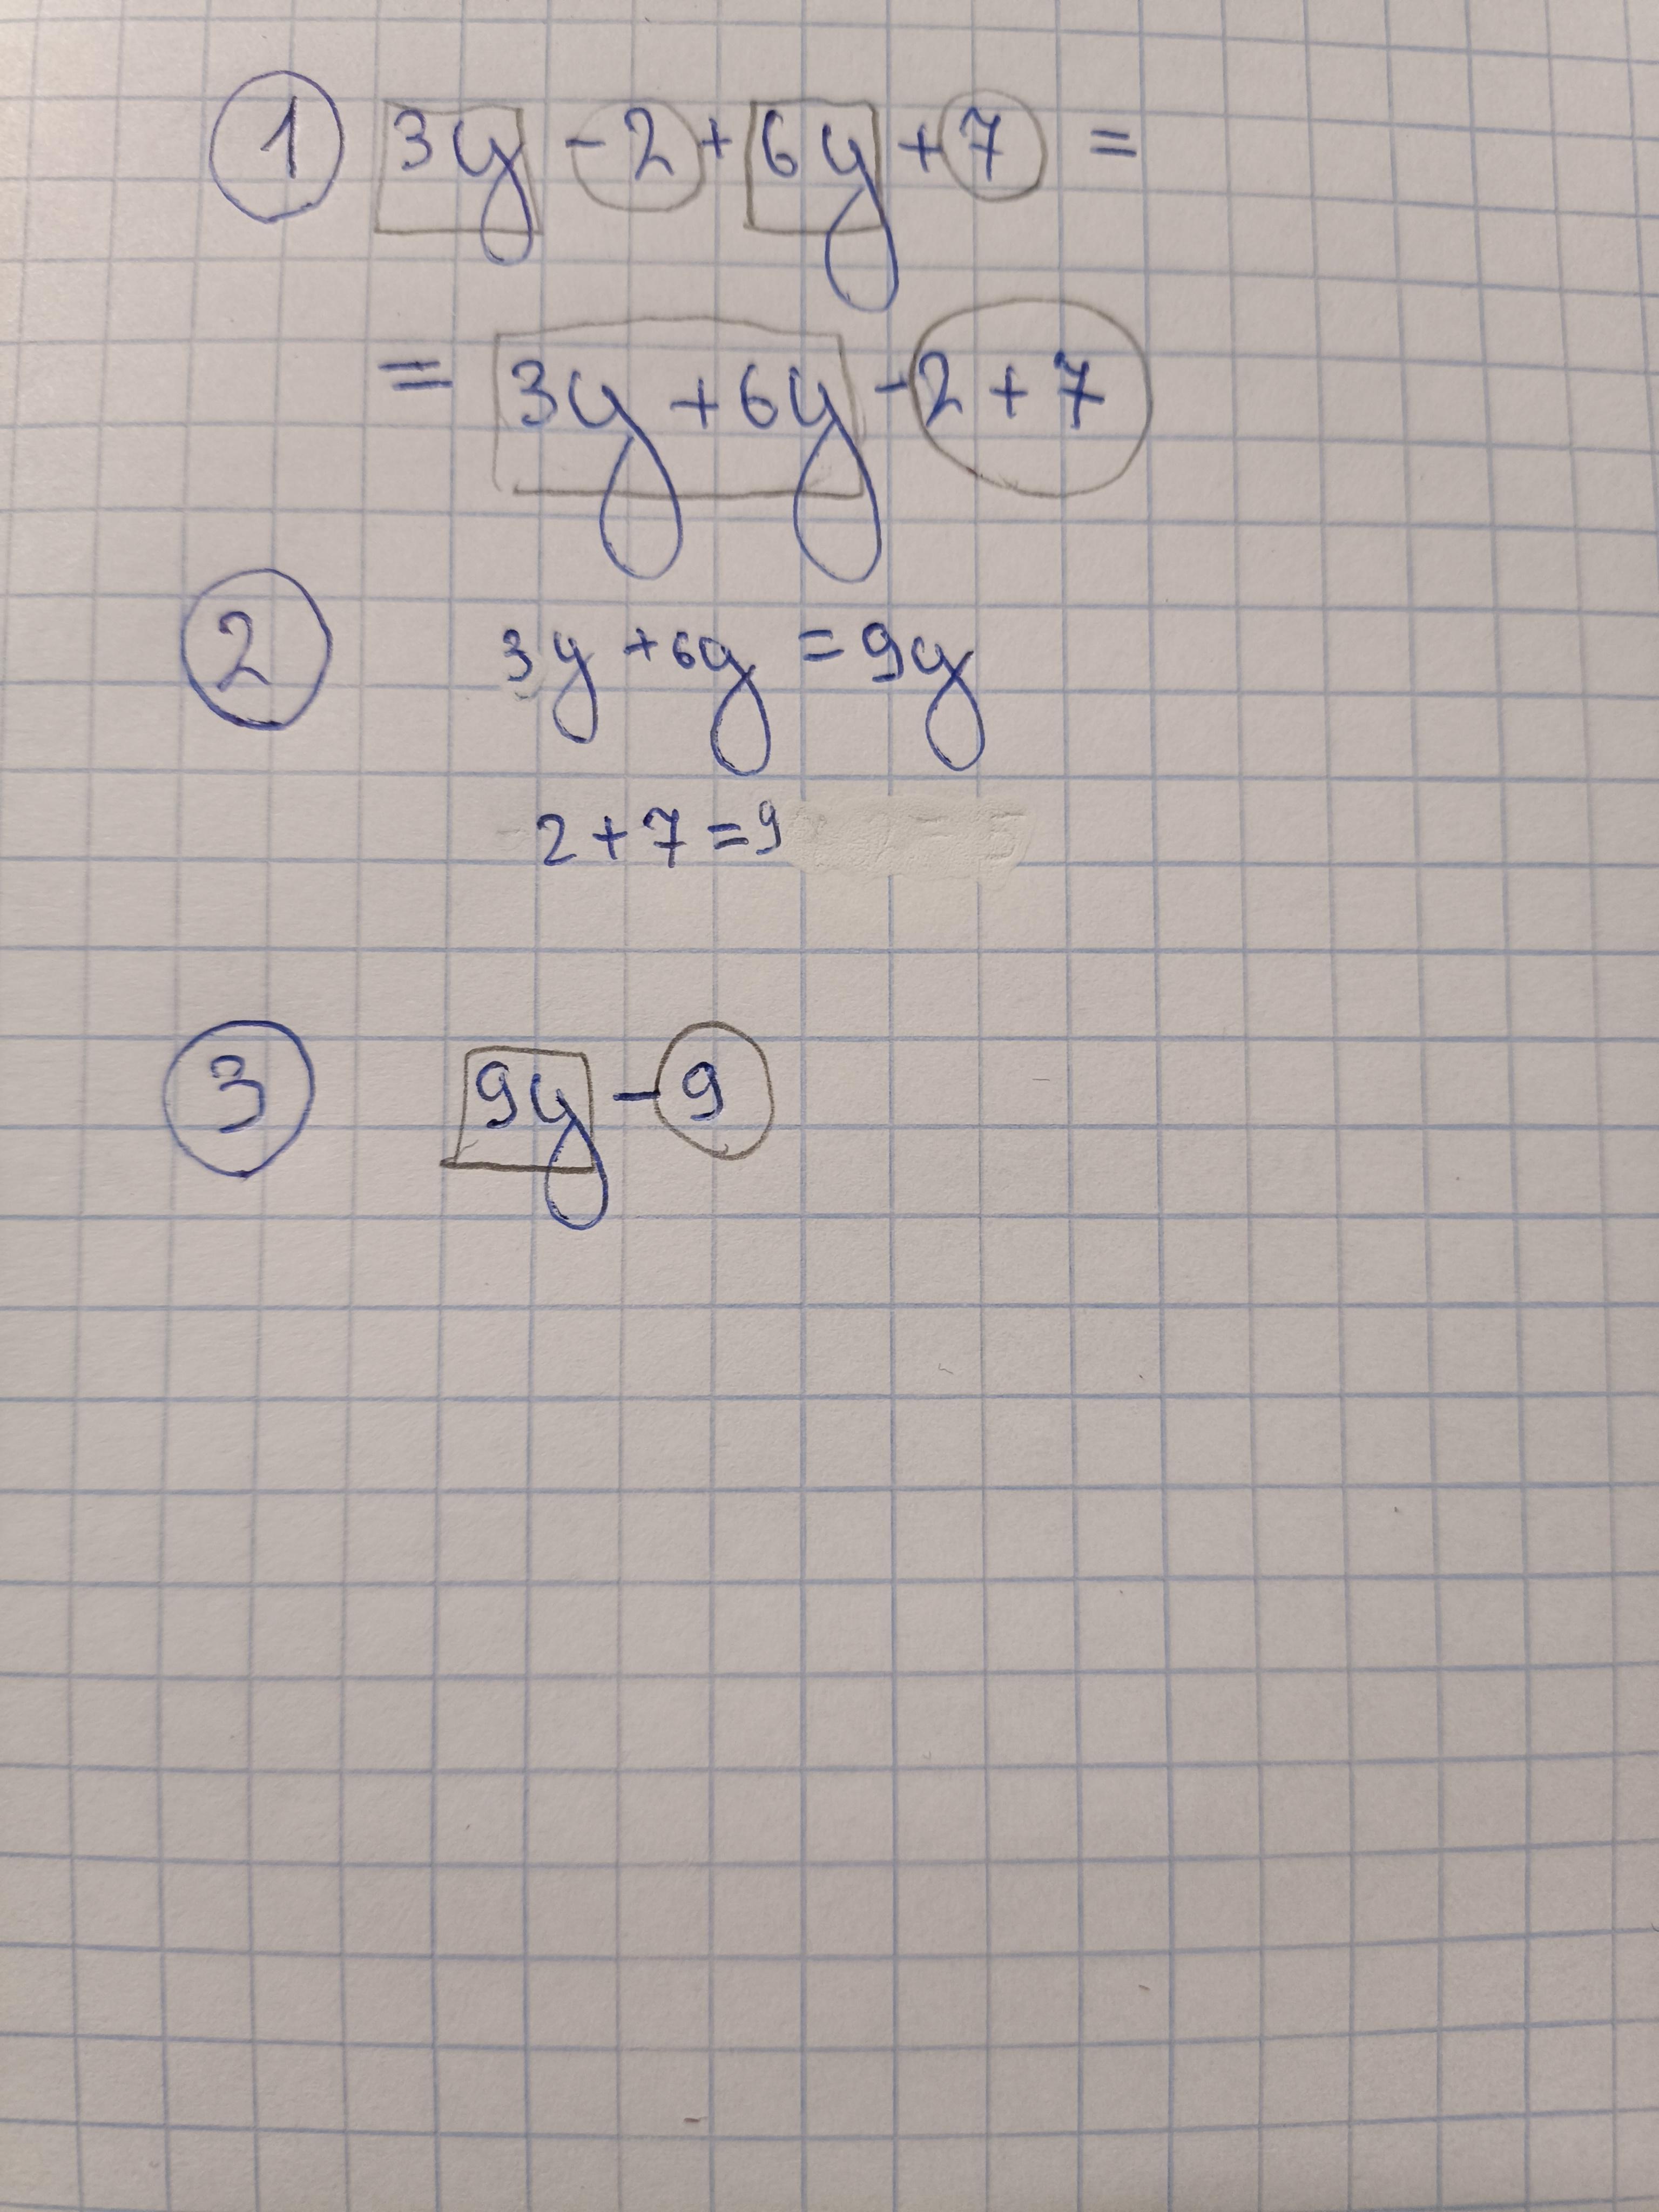 1 3y - 2 + 6y + 7 =
= 3y + 6y - 2 + 7
2 3y + 6y = 9y
2 + 7 = 9
3 9y - 9